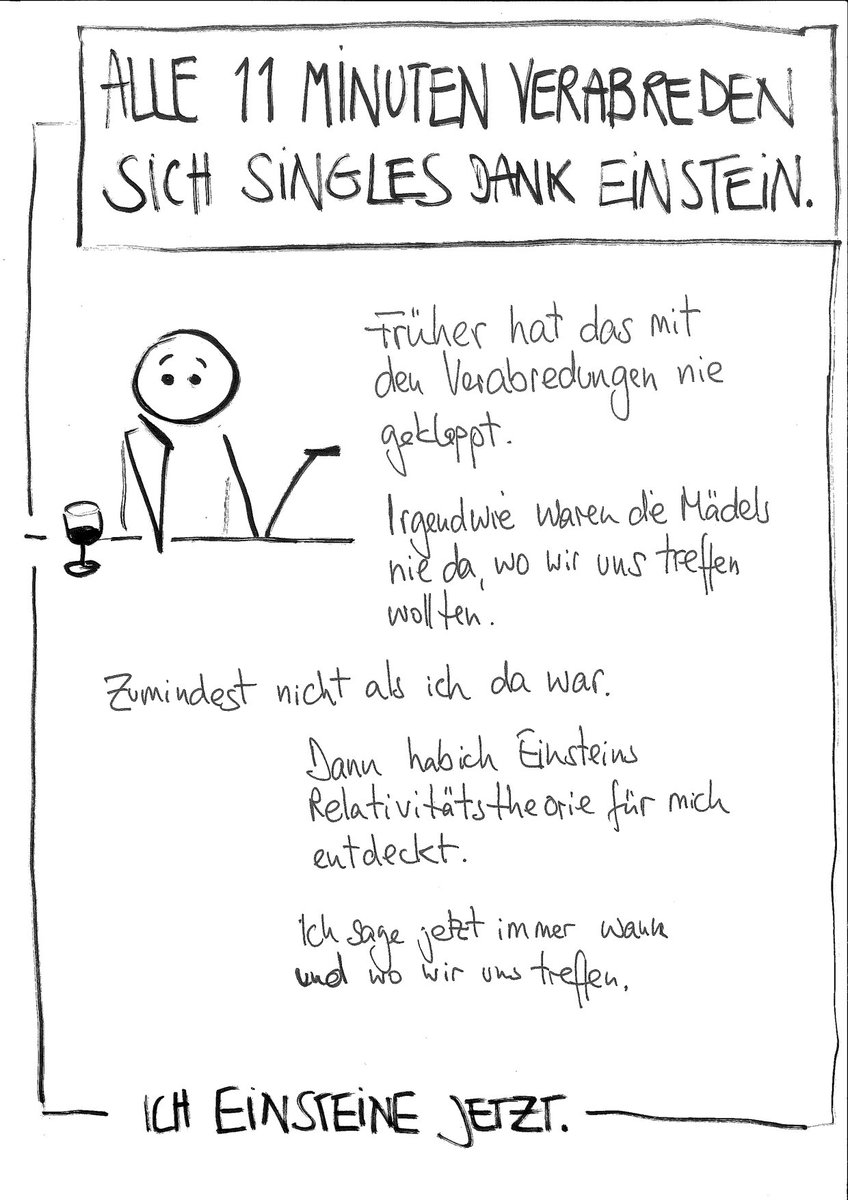 ALLE 11 MINUTEN VERABREDEN
SICH SINGLES DANK EINSTEIN.
Früher hat das mit
den Verabredungen nie
geklappt.
Irgendwie waren die Mädels
nie da, wo wir uns treffen
wollten.
Zumindest nicht als ich da war.
Dann hab ich Einsteins
Relativitätstheorie für mich
entdeckt.
Ich sage jetzt immer wann
und wo wir uns treffen.
ICH EINSTEINE JETZT.